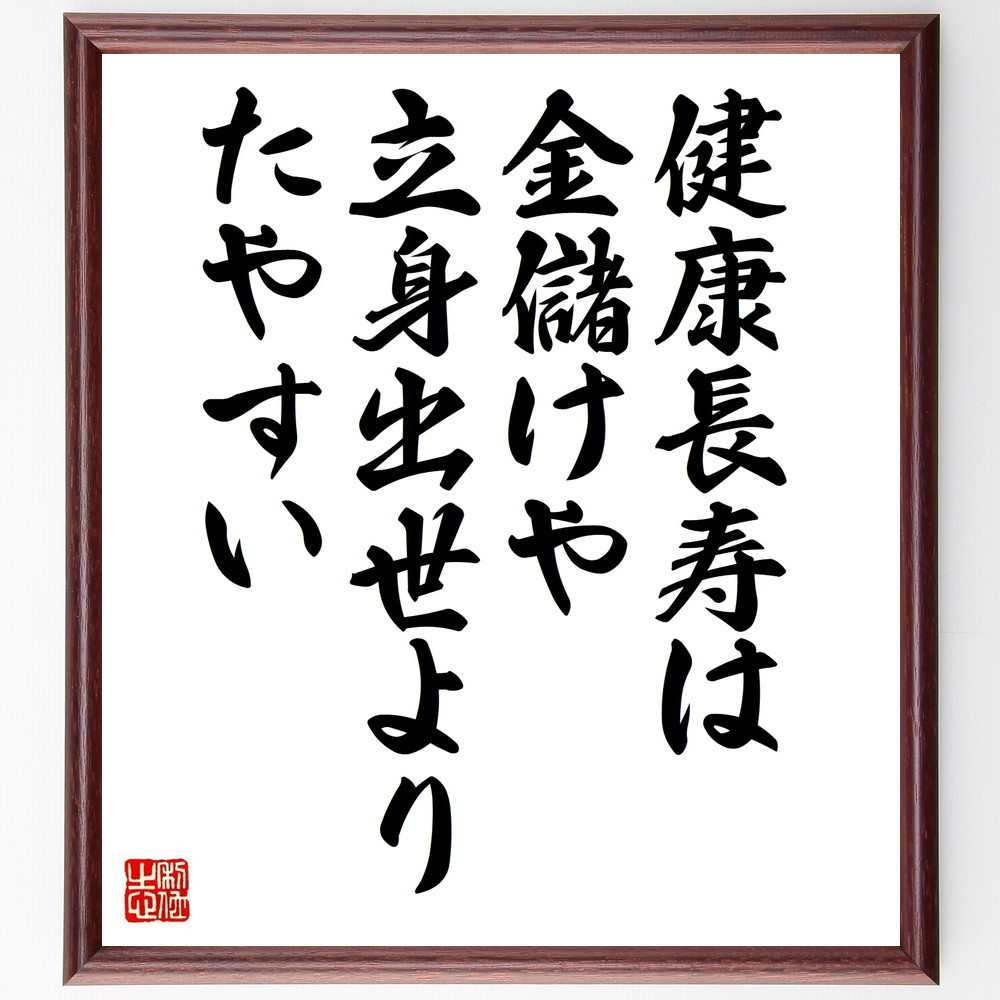 健康長寿は
金儲けや
立身出世より
たやすい